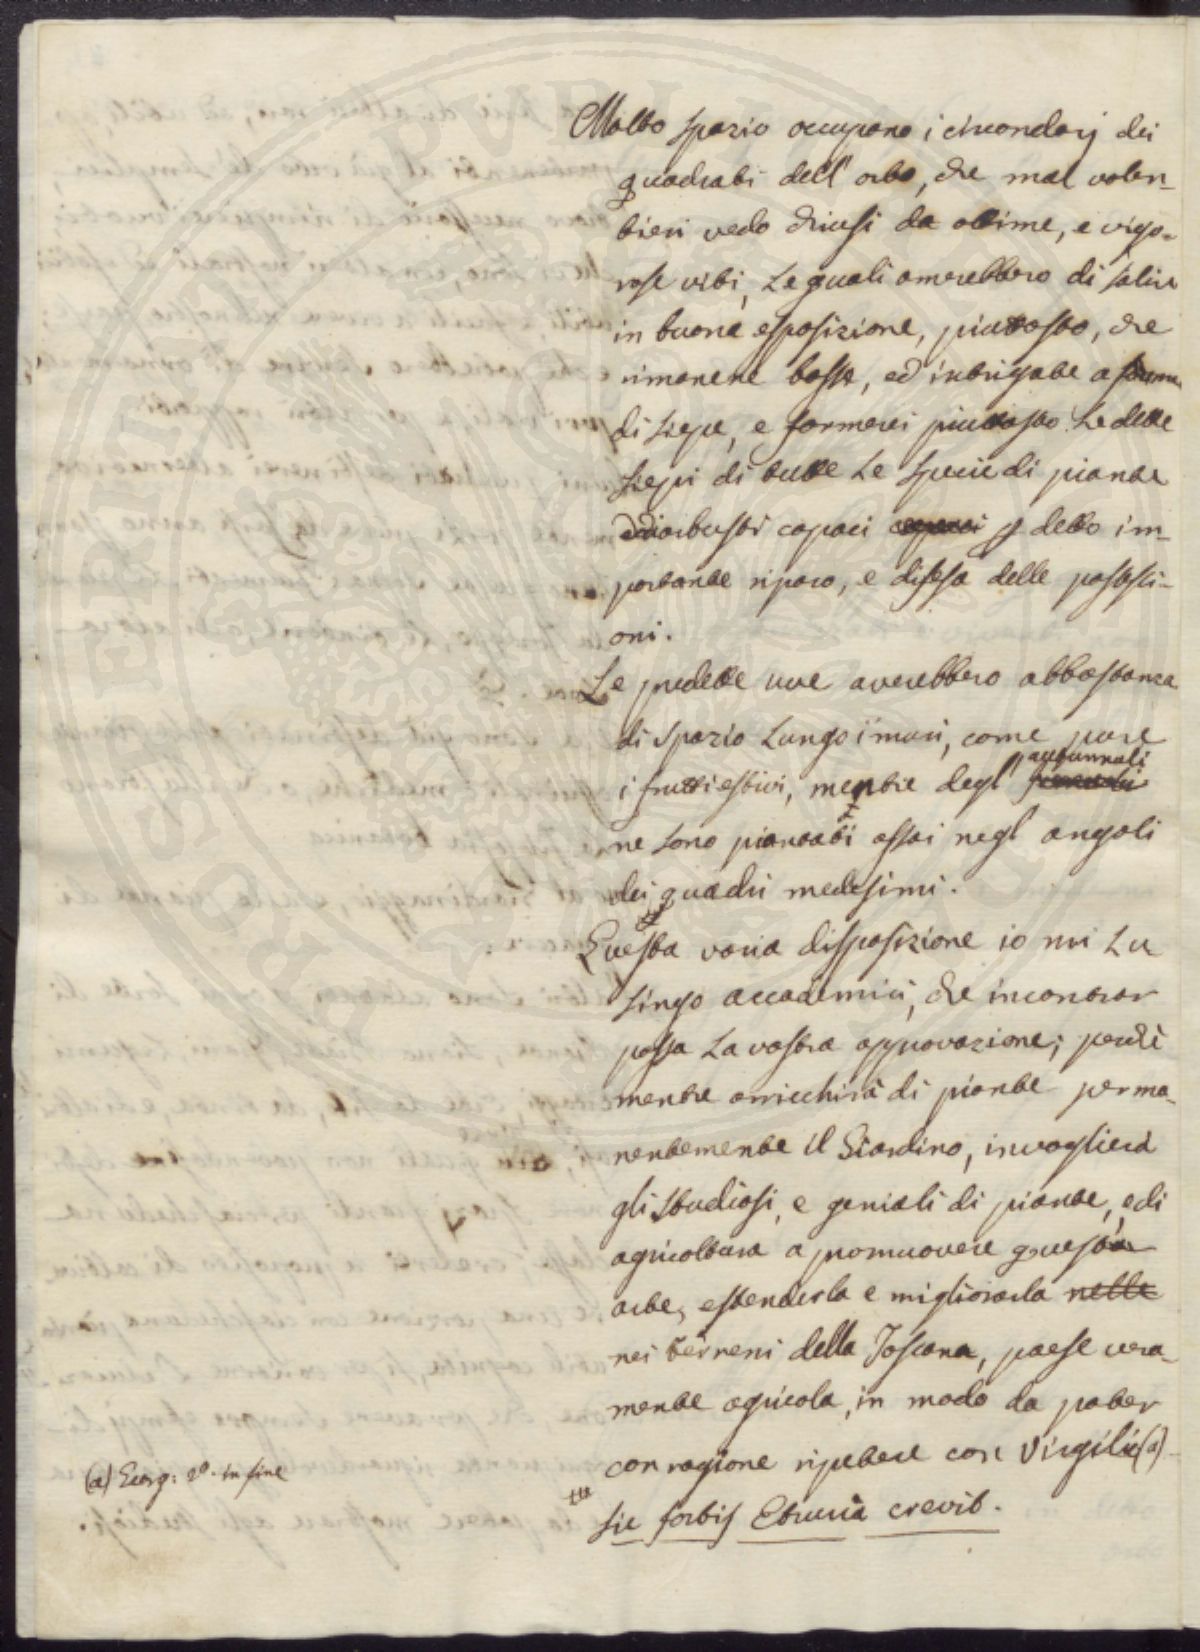 Molto spazio occupano i circondarj dei
quadrati dell' orto, che mal volen-
tieri vedo chiusi da ottime, e vigo-
rose viti, Le quali amerebbero di salire
in buona esposizione, piuttosto, che
rimanere basse, ed intrigate a forma
di siepe, e formerei piuttosto Le dette
siepi di tutte Le specie di piante
ed arbusti capaci capaci p detto im-
portante riparo, e difesa delle possessi-
oni.
Le predette uve averebbero abbastanza
di spazio Lungo i muri, come pure
autunnali
i frutti estivi, mentre degl'
ne sono piantati assai negl angoli
dei quadri medesimi.
Questa varia disposizione io mi Lu
singo accademici, che incontrar
possa La vostra approvazione; perchè
mentre arricchirà di piante perma-
nentemente il Giardino, invoglierà
gli studiosi, e geniali di piante, e di
agricoltura a promuovere quest'
arte, estenderla e migliorarla nelle
nei terreni della Toscana, paese vera-
mente agricola, in modo da poter
con ragione ripetere con Virgilio (a)
sic fortis Etruria crevit.
(a) Georg: 2º. in fine